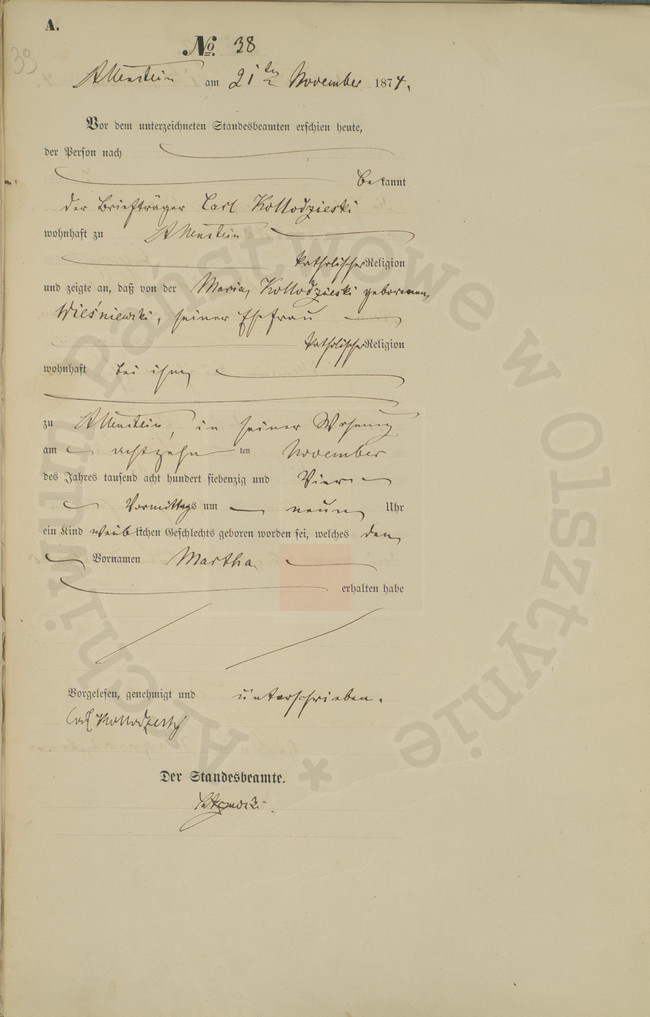 A.
39
No. 38
Allenstein am 21ten November 1874.
Vor dem unterzeichneten Standesbeamten erschien heute,
der Person nach
bekannt
der Briefträger Carl Kollodzieski
wohnhaft zu Allenstein
katholischer Religion
und zeigte an, daß von der Maria Kollodzieski geborenen
Wieśniewski, seiner Ehefrau
katholischer Religion
wohnhaft bei ihm
zu Allenstein, in seiner Wohnung
am achtzehn ten November
des Jahres tausend acht hundert siebenzig und Vier
Vormittags um neun Uhr
ein Kind weiblichen Geschlechts geboren worden sei, welches den
Vornamen Martha
erhalten habe
Vorgelesen, genehmigt und unterschrieben.
Carl
Der Standesbeamte.
Archiwum Państwowe w Olsztynie *